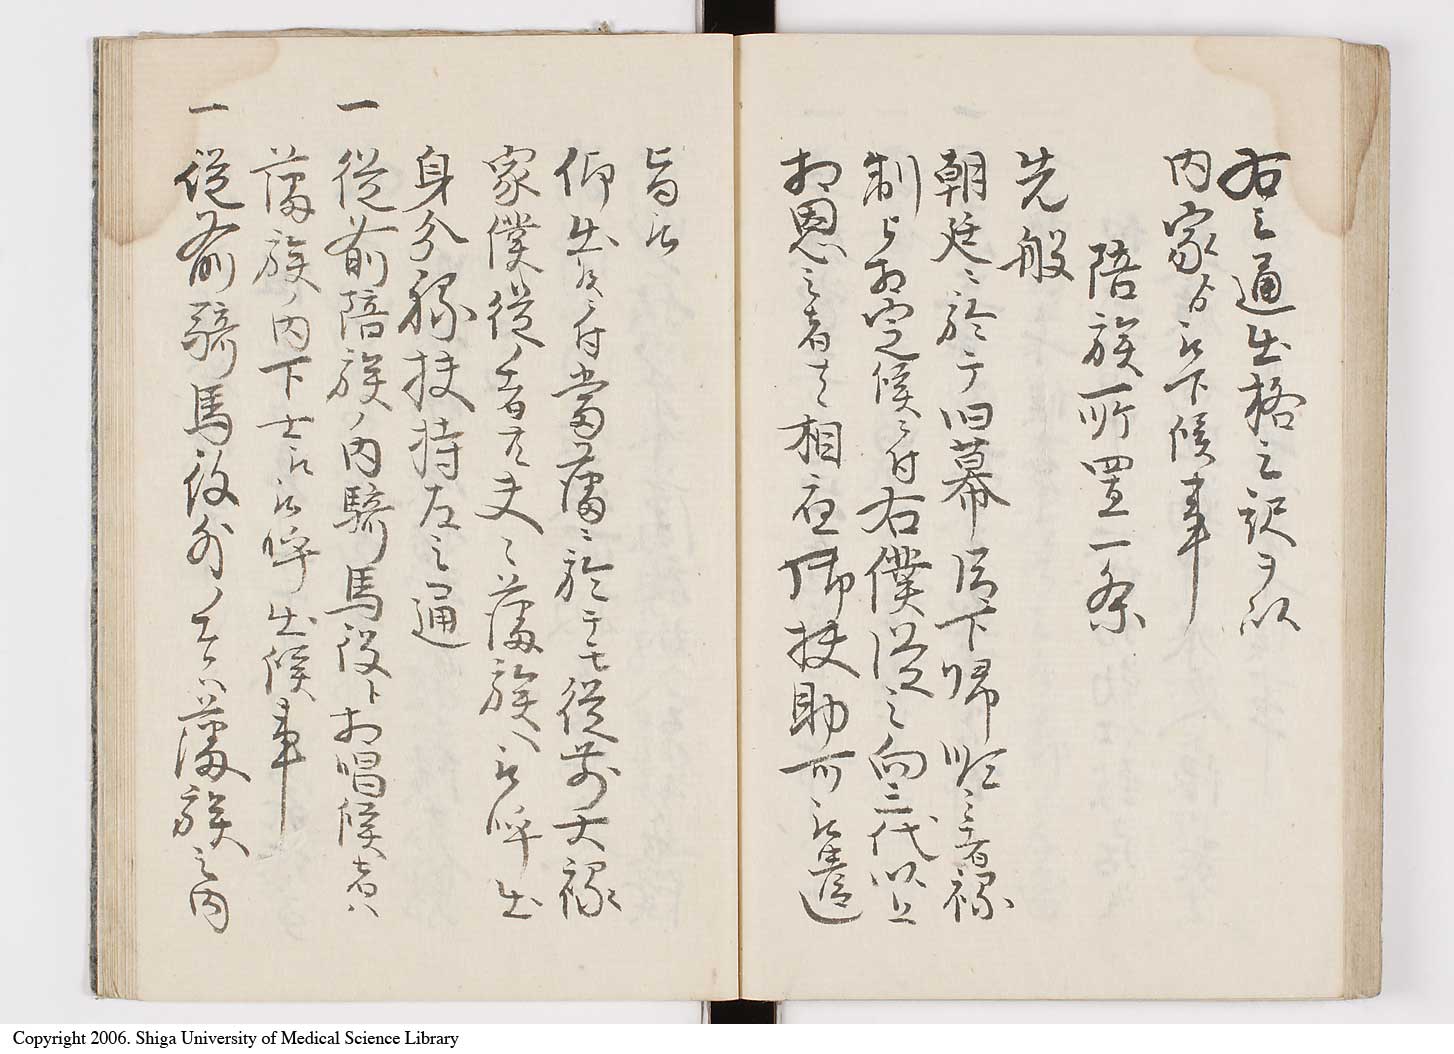 右之通出格之訳ヲ以
内家ゟ被下候事
陪族所置一条
先般
朝廷ニ於テ旧幕臣下帰順之者禄
制与相定候ニ付右僕従之向三代以上
相恩之者者相応御扶助可被遣
旨被
仰出候ニ付当藩ニ於テモ従前大禄
家僕従ノ者共夫々藩族へ被呼出
身分禄扶持左之通
一 従前陪族ノ内騎馬役ト相唱候者ハ
藩族ノ内下士被呼出候事
一 従前騎馬役外ノ者ハ藩族之内
Copyright 2006. Shiga University of Medical Science Library